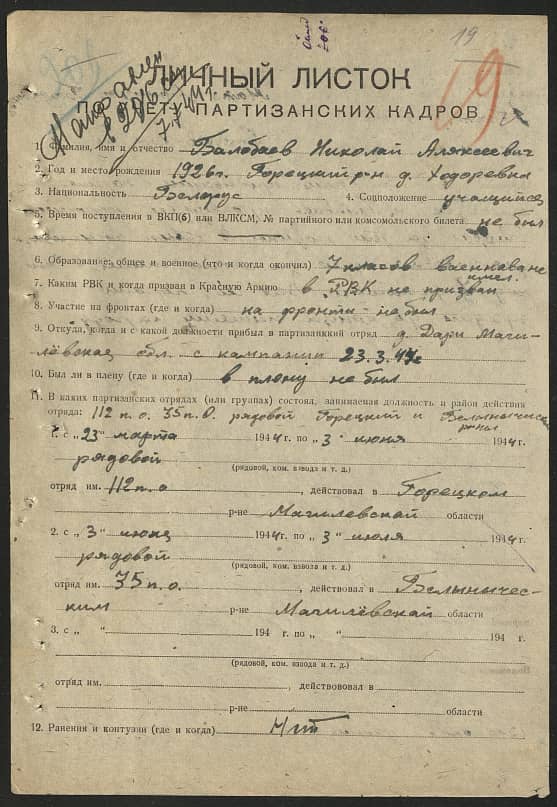 19
19
ЛИЧНЫЙ ЛИСТОК
ПО УЧЕТУ ПАРТИЗАНСКИХ КАДРОВ
в РВК
7/7 44 г.
1. Фамилия, имя и отчество Балабаев Николай Аляксеевич
2. Год и место рождения 1926 г. Горецкий р-н д. Ходоревка
3. Национальность Белорус 4. Соцположение учащийся
5. Время поступления в ВКП(б) или ВЛКСМ, № партийного или комсомольского билета не был
6. Образование: общее и военное (что и когда окончил) 7 класов
7. Каким РВК и когда призван в Красную Армию в РВК не призван
8. Участие на фронтах (где и когда) на фронти не был
9. Откуда, когда и с какой должности прибыл в партизанский отряд д. Дари Маги-
лёвская обл. с кампании 23.3.44г
10. Был ли в плену (где и когда) в плену не был
11. В каких партизанских отрядах (или группах) состоял, занимаемая должность и район действия
отряда: 112 п.о. 35 п.о. рядовой Горецкий и
1. с „23“ марта 1944 г. по „3“ июня 1944 г.
рядовой
(рядовой, ком. взвода и т. д.)
отряд им. 112 п.о , действовал в Горецком
р-не Магилевской области
2. с „3“ июня 1944 г. по „3“ июля 1944 г.
рядовой
(рядовой, ком. взвода и т. д.)
отряд им. 35 п.о. , действовал в Белыничес-
ким р-не Магилёвской области
3. с „ “ 194 г. по „ “ 194 г.
(рядовой, ком. взвода и т. д.)
отряд им. , действововал в
р-не области
12. Ранения и контузии (где и когда) Нет